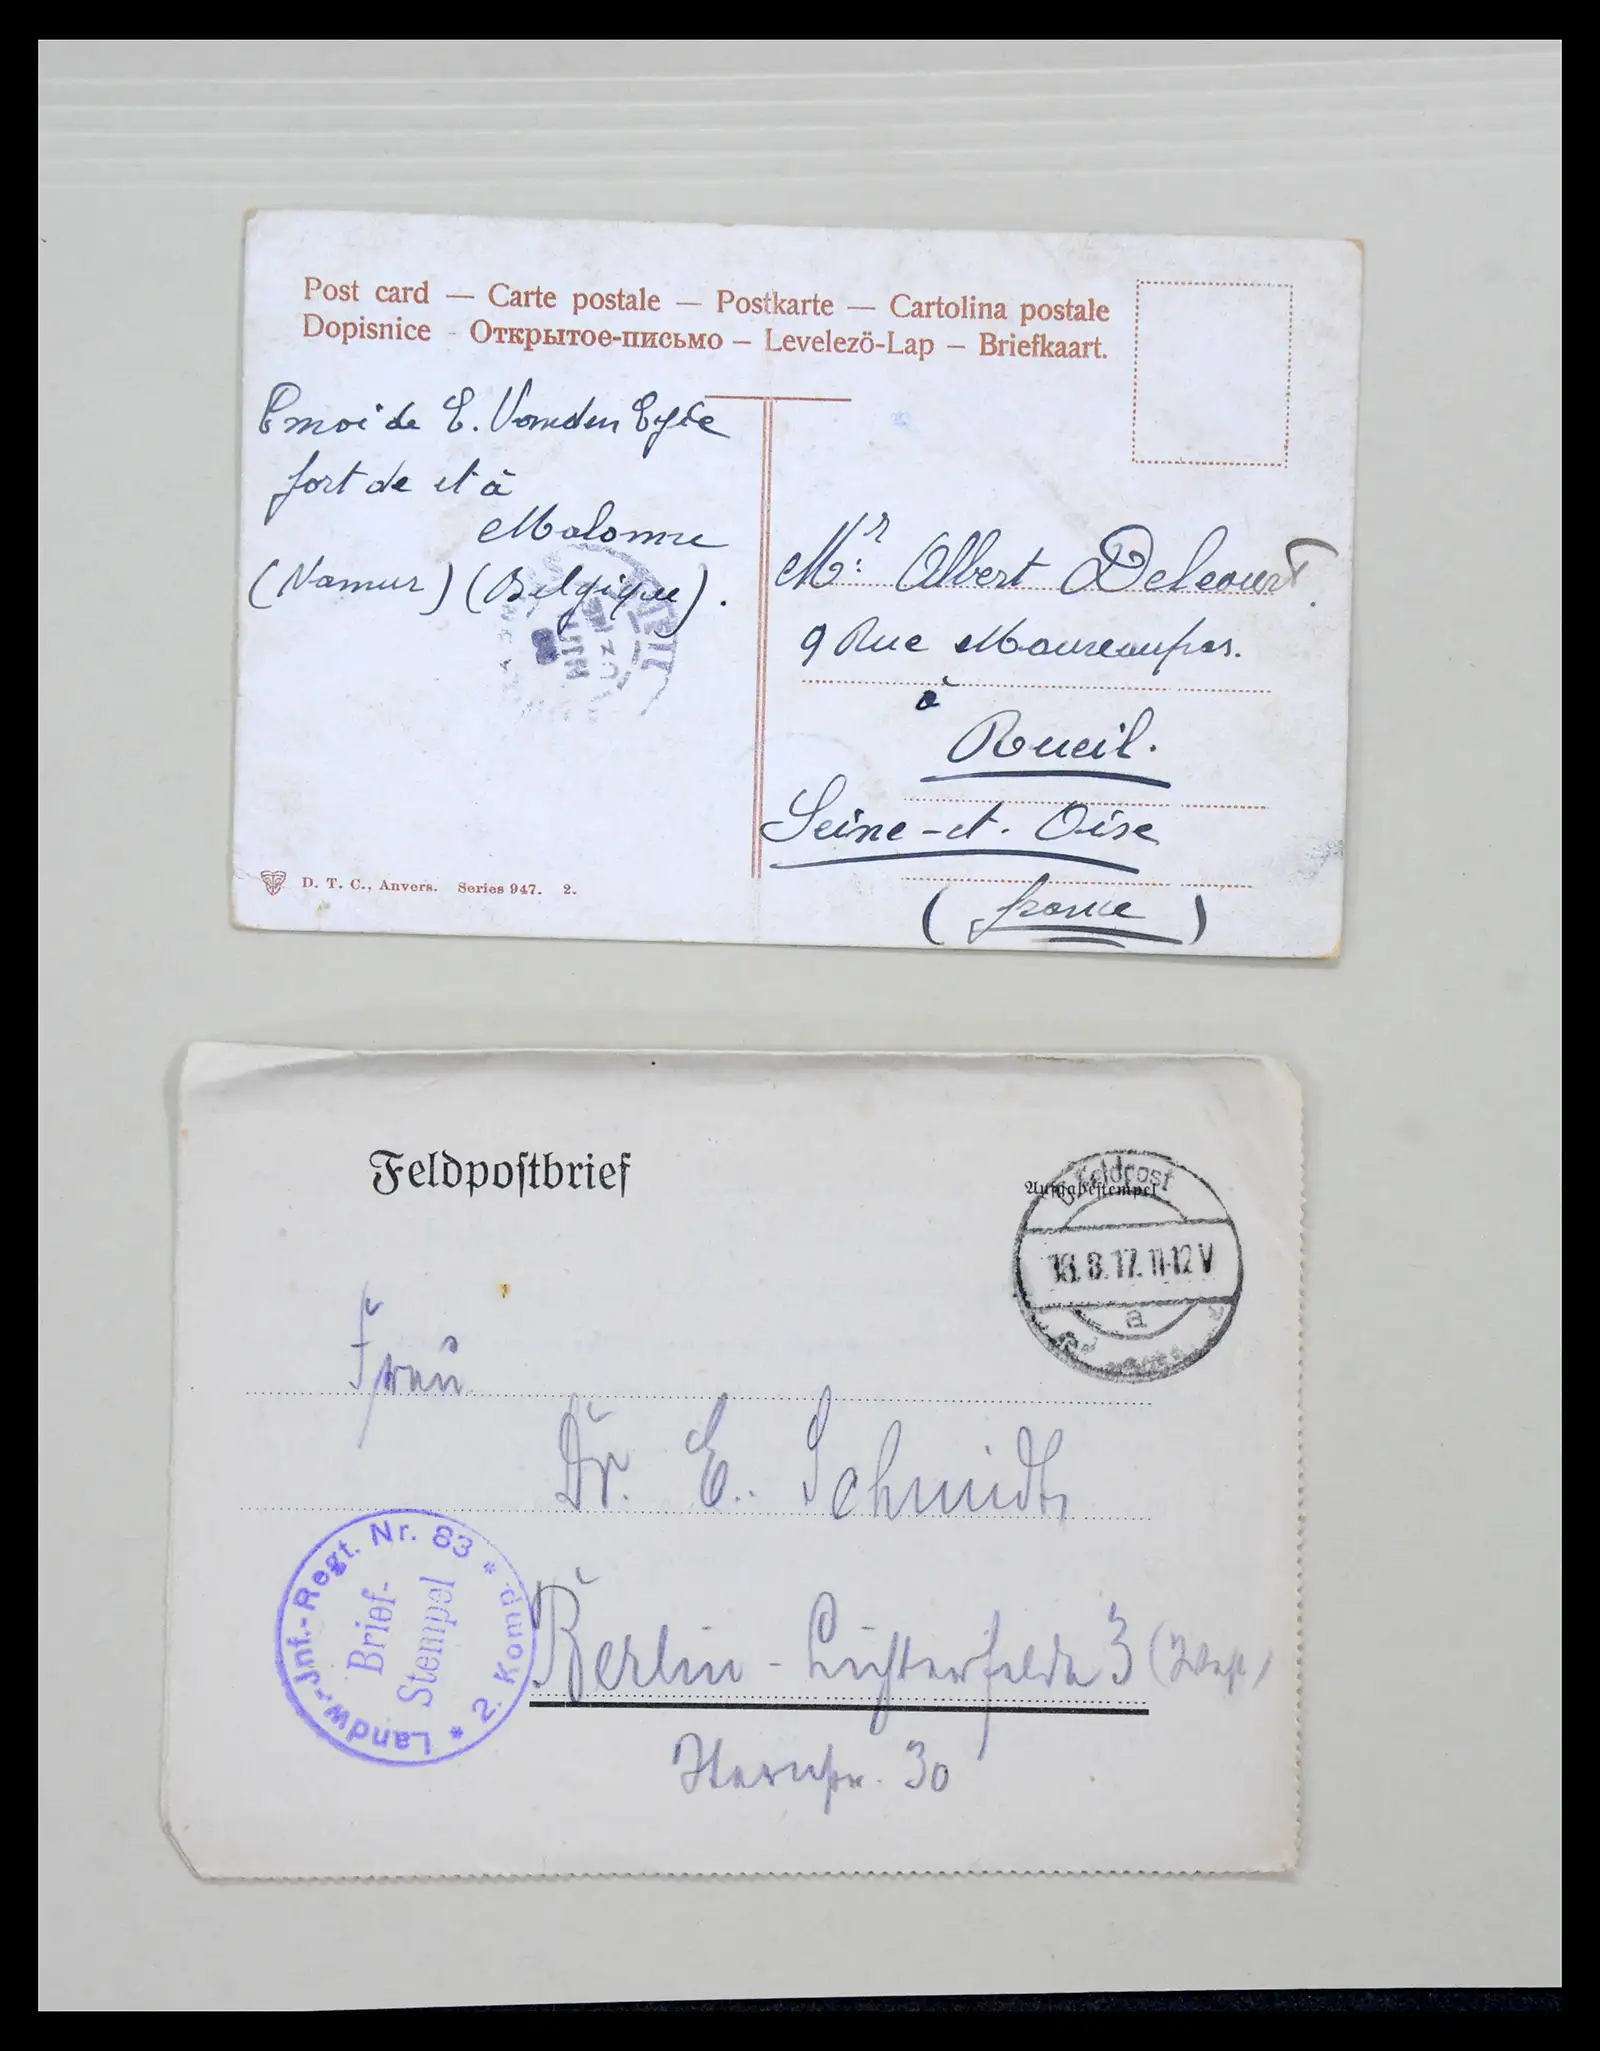 Post card — Carte postale — Postkarte — Cartolina postale
Dopisnice - Открытое-письмо — Levelezö-Lap — Briefkaart.
Envoi de E. Vanden
fort de et à
Malonne
(Namur) (Belgique).
Mr. Albert Delcourt
9 Rue
à
Rueil.
Seine-et-Oise
(france)
D. T. C., Anvers. Series 947. 2.
Feldpostbrief
Aufgabestempel
Feldpost
18.8.17. 11-12 V
a
Frau
Dr. E. Schmidt,
Landw.-Jnf.-Regt. Nr. 83 * 2. Komp. *
Brief-
Stempel
Berlin - Lichterfelde 3 (West)
Sternstr. 30